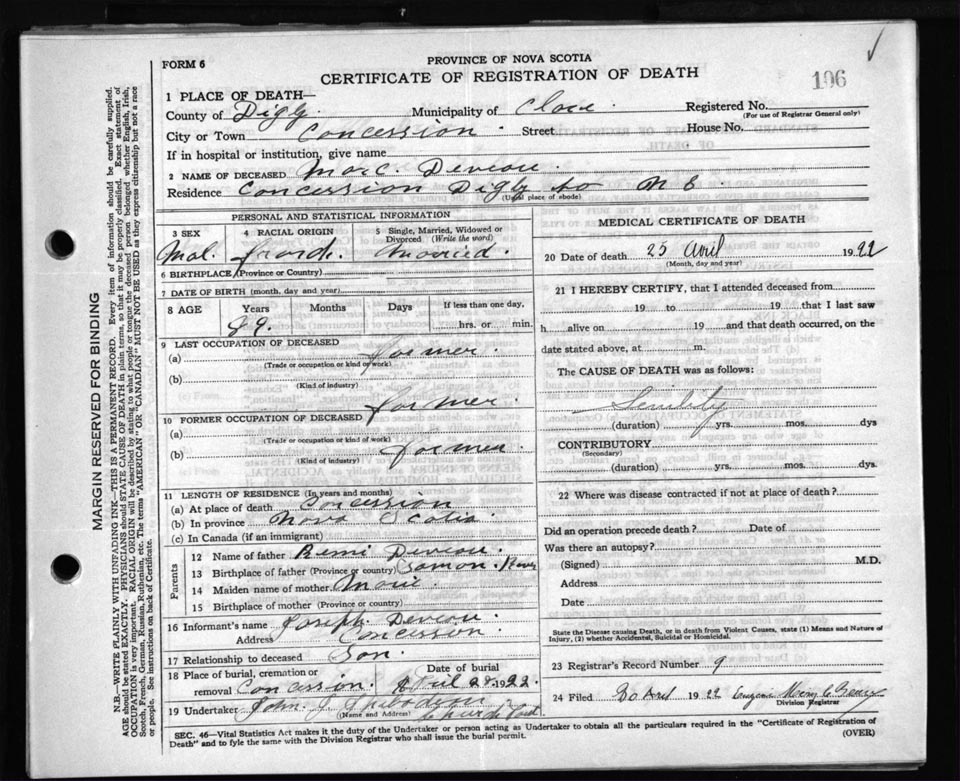 PROVINCE OF NOVA SCOTIA
FORM 6
CERTIFICATE OF REGISTRATION OF DEATH
106
1 PLACE OF DEATH—
County of Digby Municipality of Clare Registered No.
(For use of Registrar General only)
City or Town Concession Street House No.
If in hospital or institution, give name
2 NAME OF DECEASED Marc Deveau
Residence Concession Digby Co N S
(Usual place of abode)
PERSONAL AND STATISTICAL INFORMATION
3 SEX
4 RACIAL ORIGIN
5 Single, Married, Widowed or Divorced (Write the word)
Mal. Married.
6 BIRTHPLACE (Province or Country)
7 DATE OF BIRTH (month, day and year)
8 AGE Years Months Days If less than one day,
89. hrs. or min.
9 LAST OCCUPATION OF DECEASED
(a) farmer.
(Trade or occupation or kind of work)
(b)
(Kind of industry)
farmer.
10 FORMER OCCUPATION OF DECEASED
(a)
(Trade or occupation or kind of work)
(b) farmer
(Kind of industry)
11 LENGTH OF RESIDENCE (In years and months)
(a) At place of death Concession
(b) In province Nova Scotia
(c) In Canada (if an immigrant)
Parents
12 Name of father Remi Deveau.
13 Birthplace of father (Province or country) Samon River
14 Maiden name of mother Marie
15 Birthplace of mother (Province or country)
16 Informant's name Joseph Deveau
Address Concession
17 Relationship to deceased Son.
18 Place of burial, cremation or removal Concession. Date of burial 1922
19 Undertaker John J
(Name and Address) Church Point
MEDICAL CERTIFICATE OF DEATH
20 Date of death 25 Avril 1922
(Month, day and year)
21 I HEREBY CERTIFY, that I attended deceased from
19 to 19 that I last saw
h alive on 19 and that death occurred, on the
date stated above, at m.
The CAUSE OF DEATH was as follows:
Senility
(duration) yrs. mos. dys
CONTRIBUTORY
(Secondary)
(duration) yrs. mos. dys.
22 Where was disease contracted if not at place of death?
Did an operation precede death? Date of
Was there an autopsy?
(Signed) M.D.
Address
Date
State the Disease causing Death, or in death from Violent Causes, state (1) Means and Nature of Injury, (2) whether Accidental, Suicidal or Homicidal.
23 Registrar's Record Number 9
24 Filed 1922
Division Registrar
SEC. 46—Vital Statistics Act makes it the duty of the Undertaker or person acting as Undertaker to obtain all the particulars required in the "Certificate of Registration of
Death" and to fyle the same with the Division Registrar who shall issue the burial permit. (OVER)
MARGIN RESERVED FOR BINDING
N.B.—WRITE PLAINLY WITH UNFADING INK—THIS IS A PERMANENT RECORD. Every item of information should be carefully supplied.
AGE should be stated EXACTLY. PHYSICIANS should STATE CAUSE OF DEATH in plain terms, so that it may be properly classified. Exact statement of
OCCUPATION is very important. RACIAL ORIGIN will be described by stating to what people or tongue the deceased person belonged whether English, Irish,
Scotch, French, German, Russian, Ruthenian, etc. The terms "AMERICAN" OR "CANADIAN" MUST NOT BE USED as they express citizenship but not a race
or people. See instructions on back of Certificate.